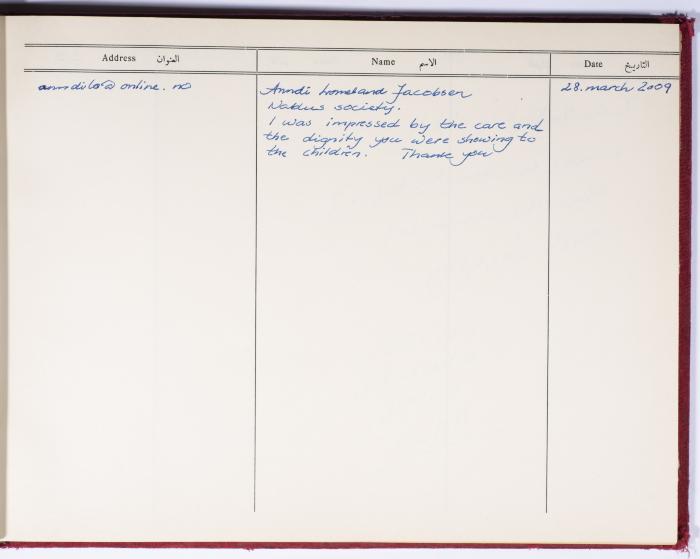 Address العنوان
Name الاسم
Date التاريخ
anndilo@online.no
Anndi Lomeland Jacobsen
28. march 2009
Nablus society.
I was impressed by the care and
the dignity you were showing to
the children. Thank you